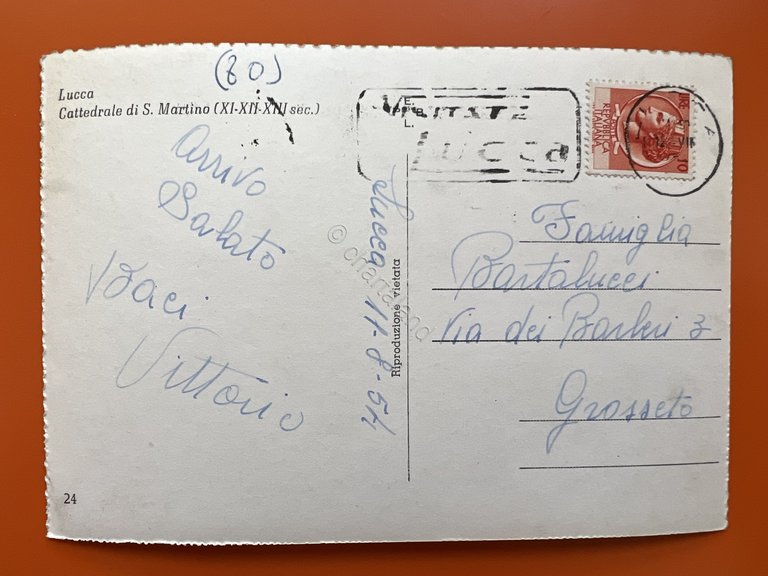 (80)
Lucca
Cattedrale di S. Martino (XI-XII-XIII sec.)
Arrivo
Sabato
Baci
Vittorio
24
Lucca 11-8-54
Riproduzione vietata
VISITATE
Lucca
REPUBBLICA
ITALIANA
LIRE 10
Famiglia
Bartalucci
Via dei Barberi 3
Grosseto